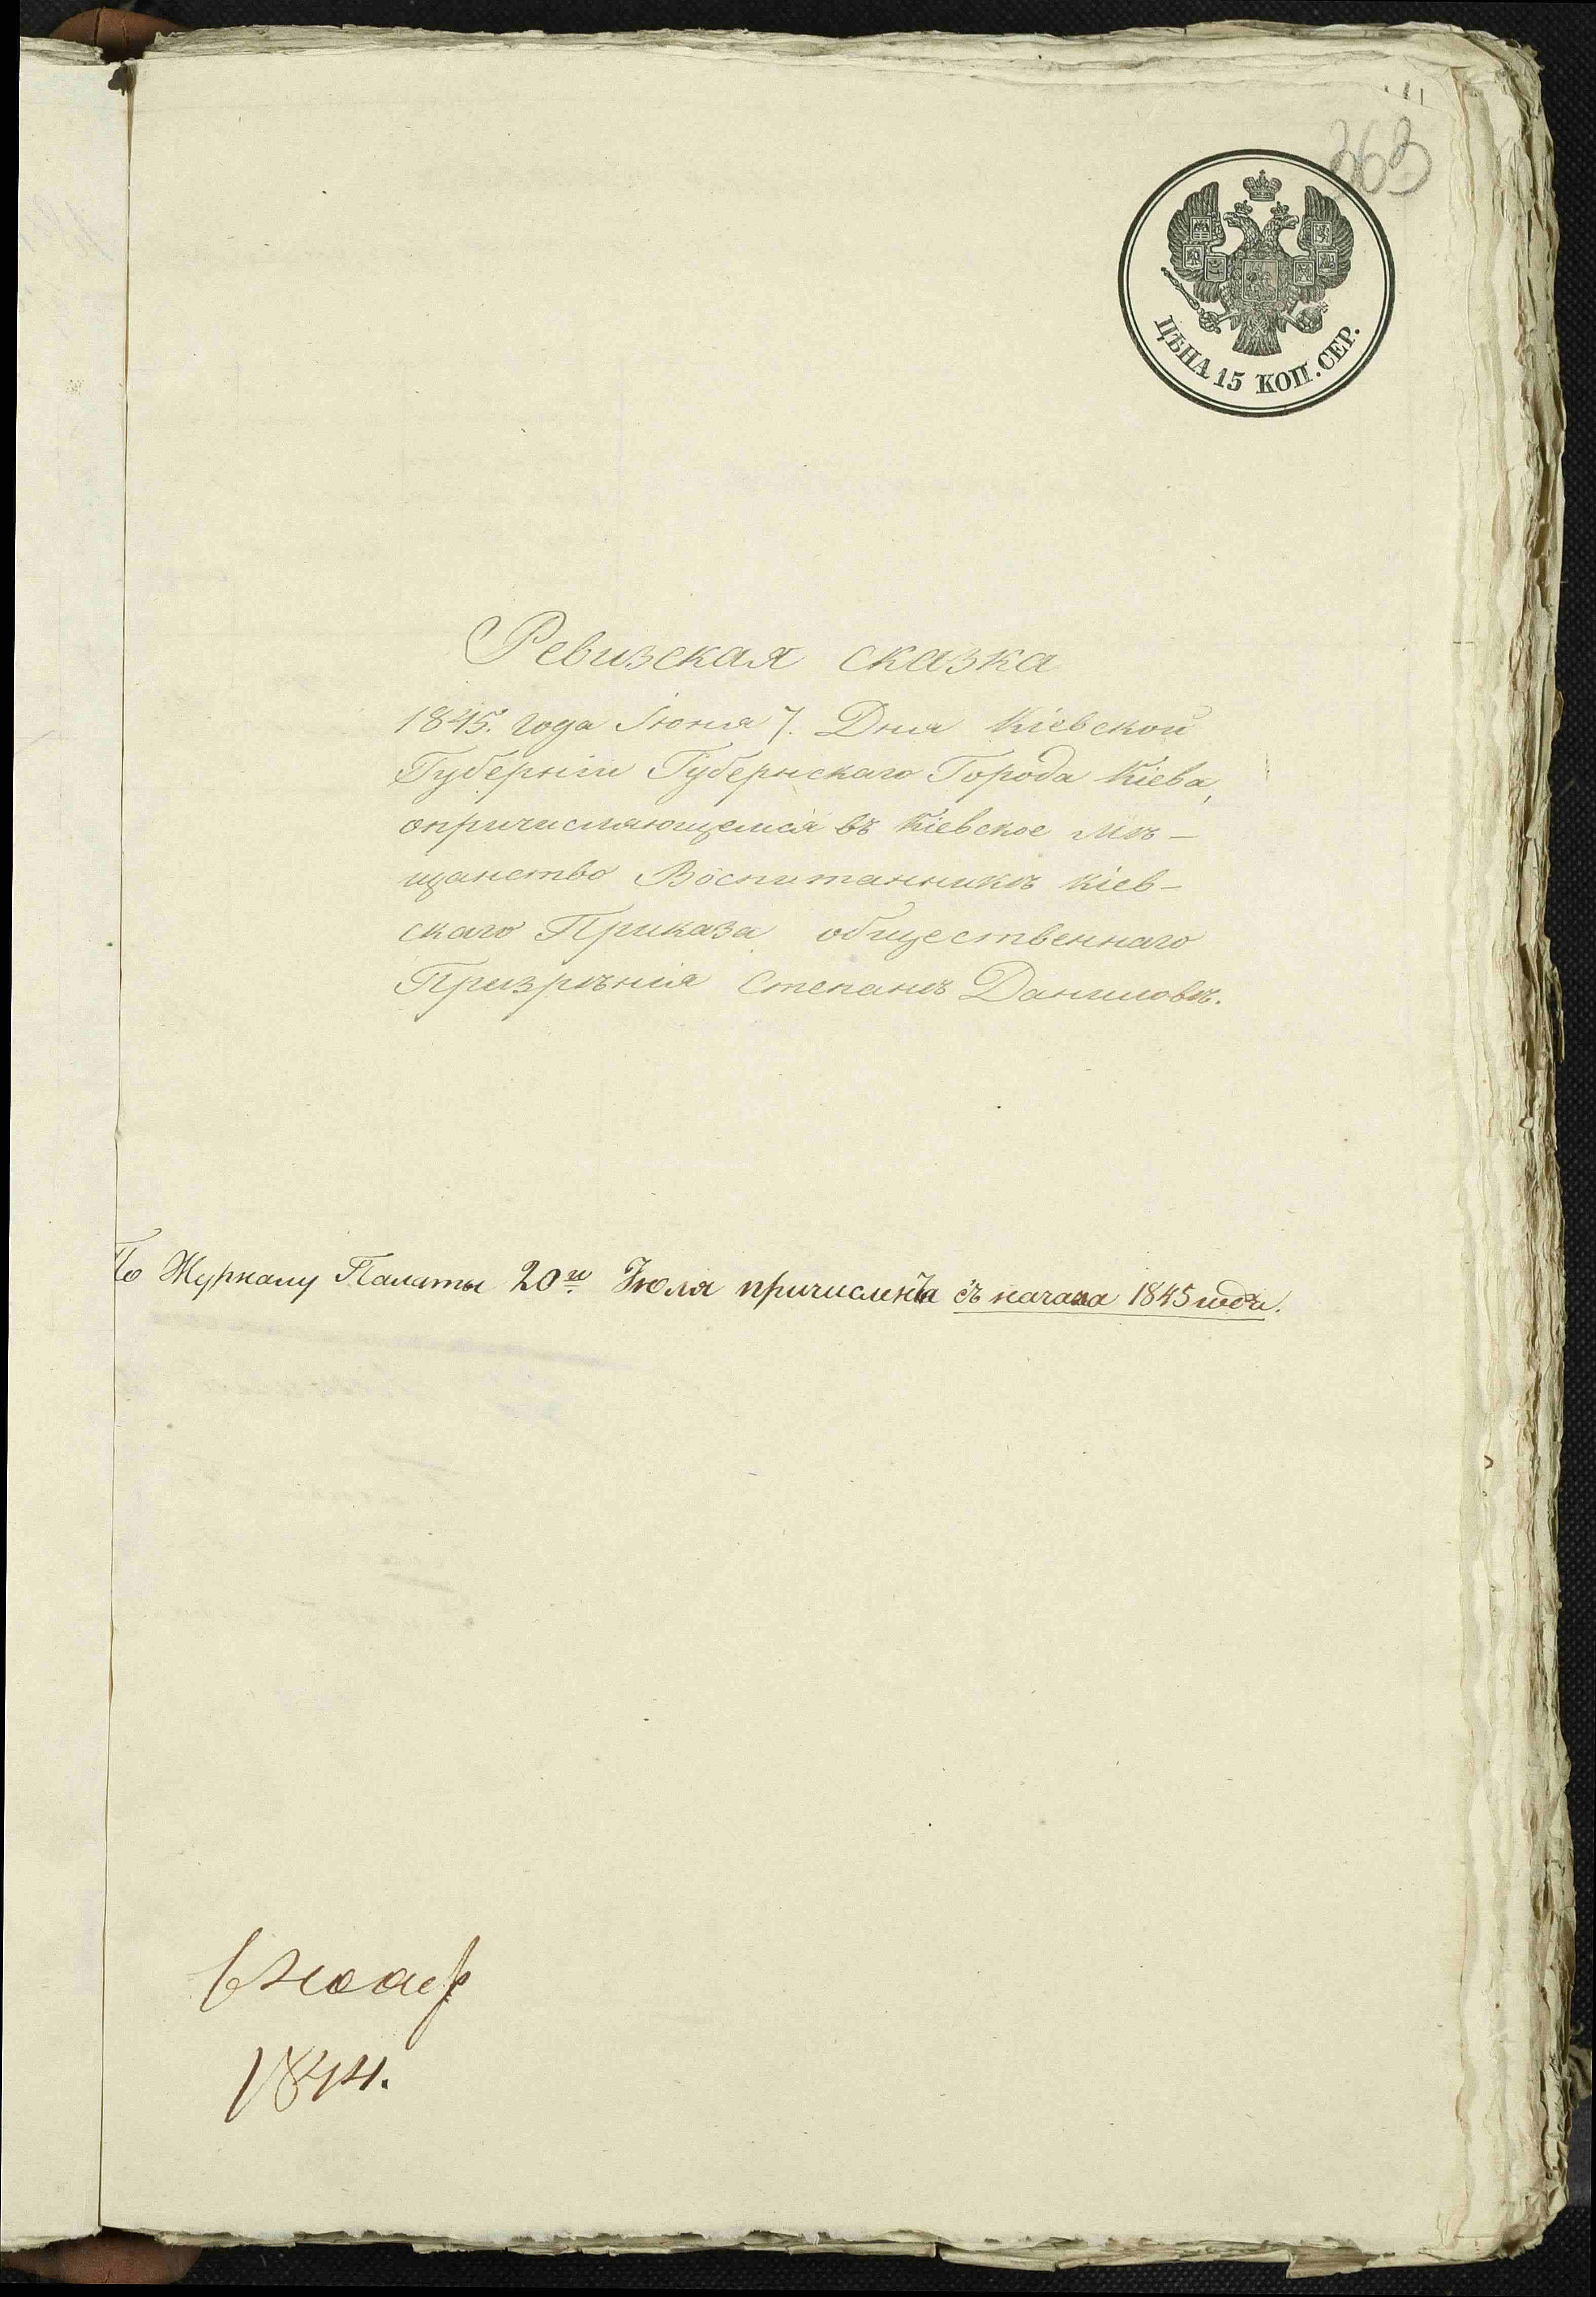 363
ЦѢНА 15 КОП. СЕР.
Ревизская сказка
1845. года Іюня 7. Дня Кіевской
Губерніи Губернскаго Города Кіева,
опричисляющемся въ Кіевское мѣ-
щанство Воспитанникѣ Кіев-
скаго Приказа общественнаго
Призрѣнія Степанѣ Даниловѣ.
По Журналу Палаты 20го Іюля причисленъ съ начала 1845 года.
1844.